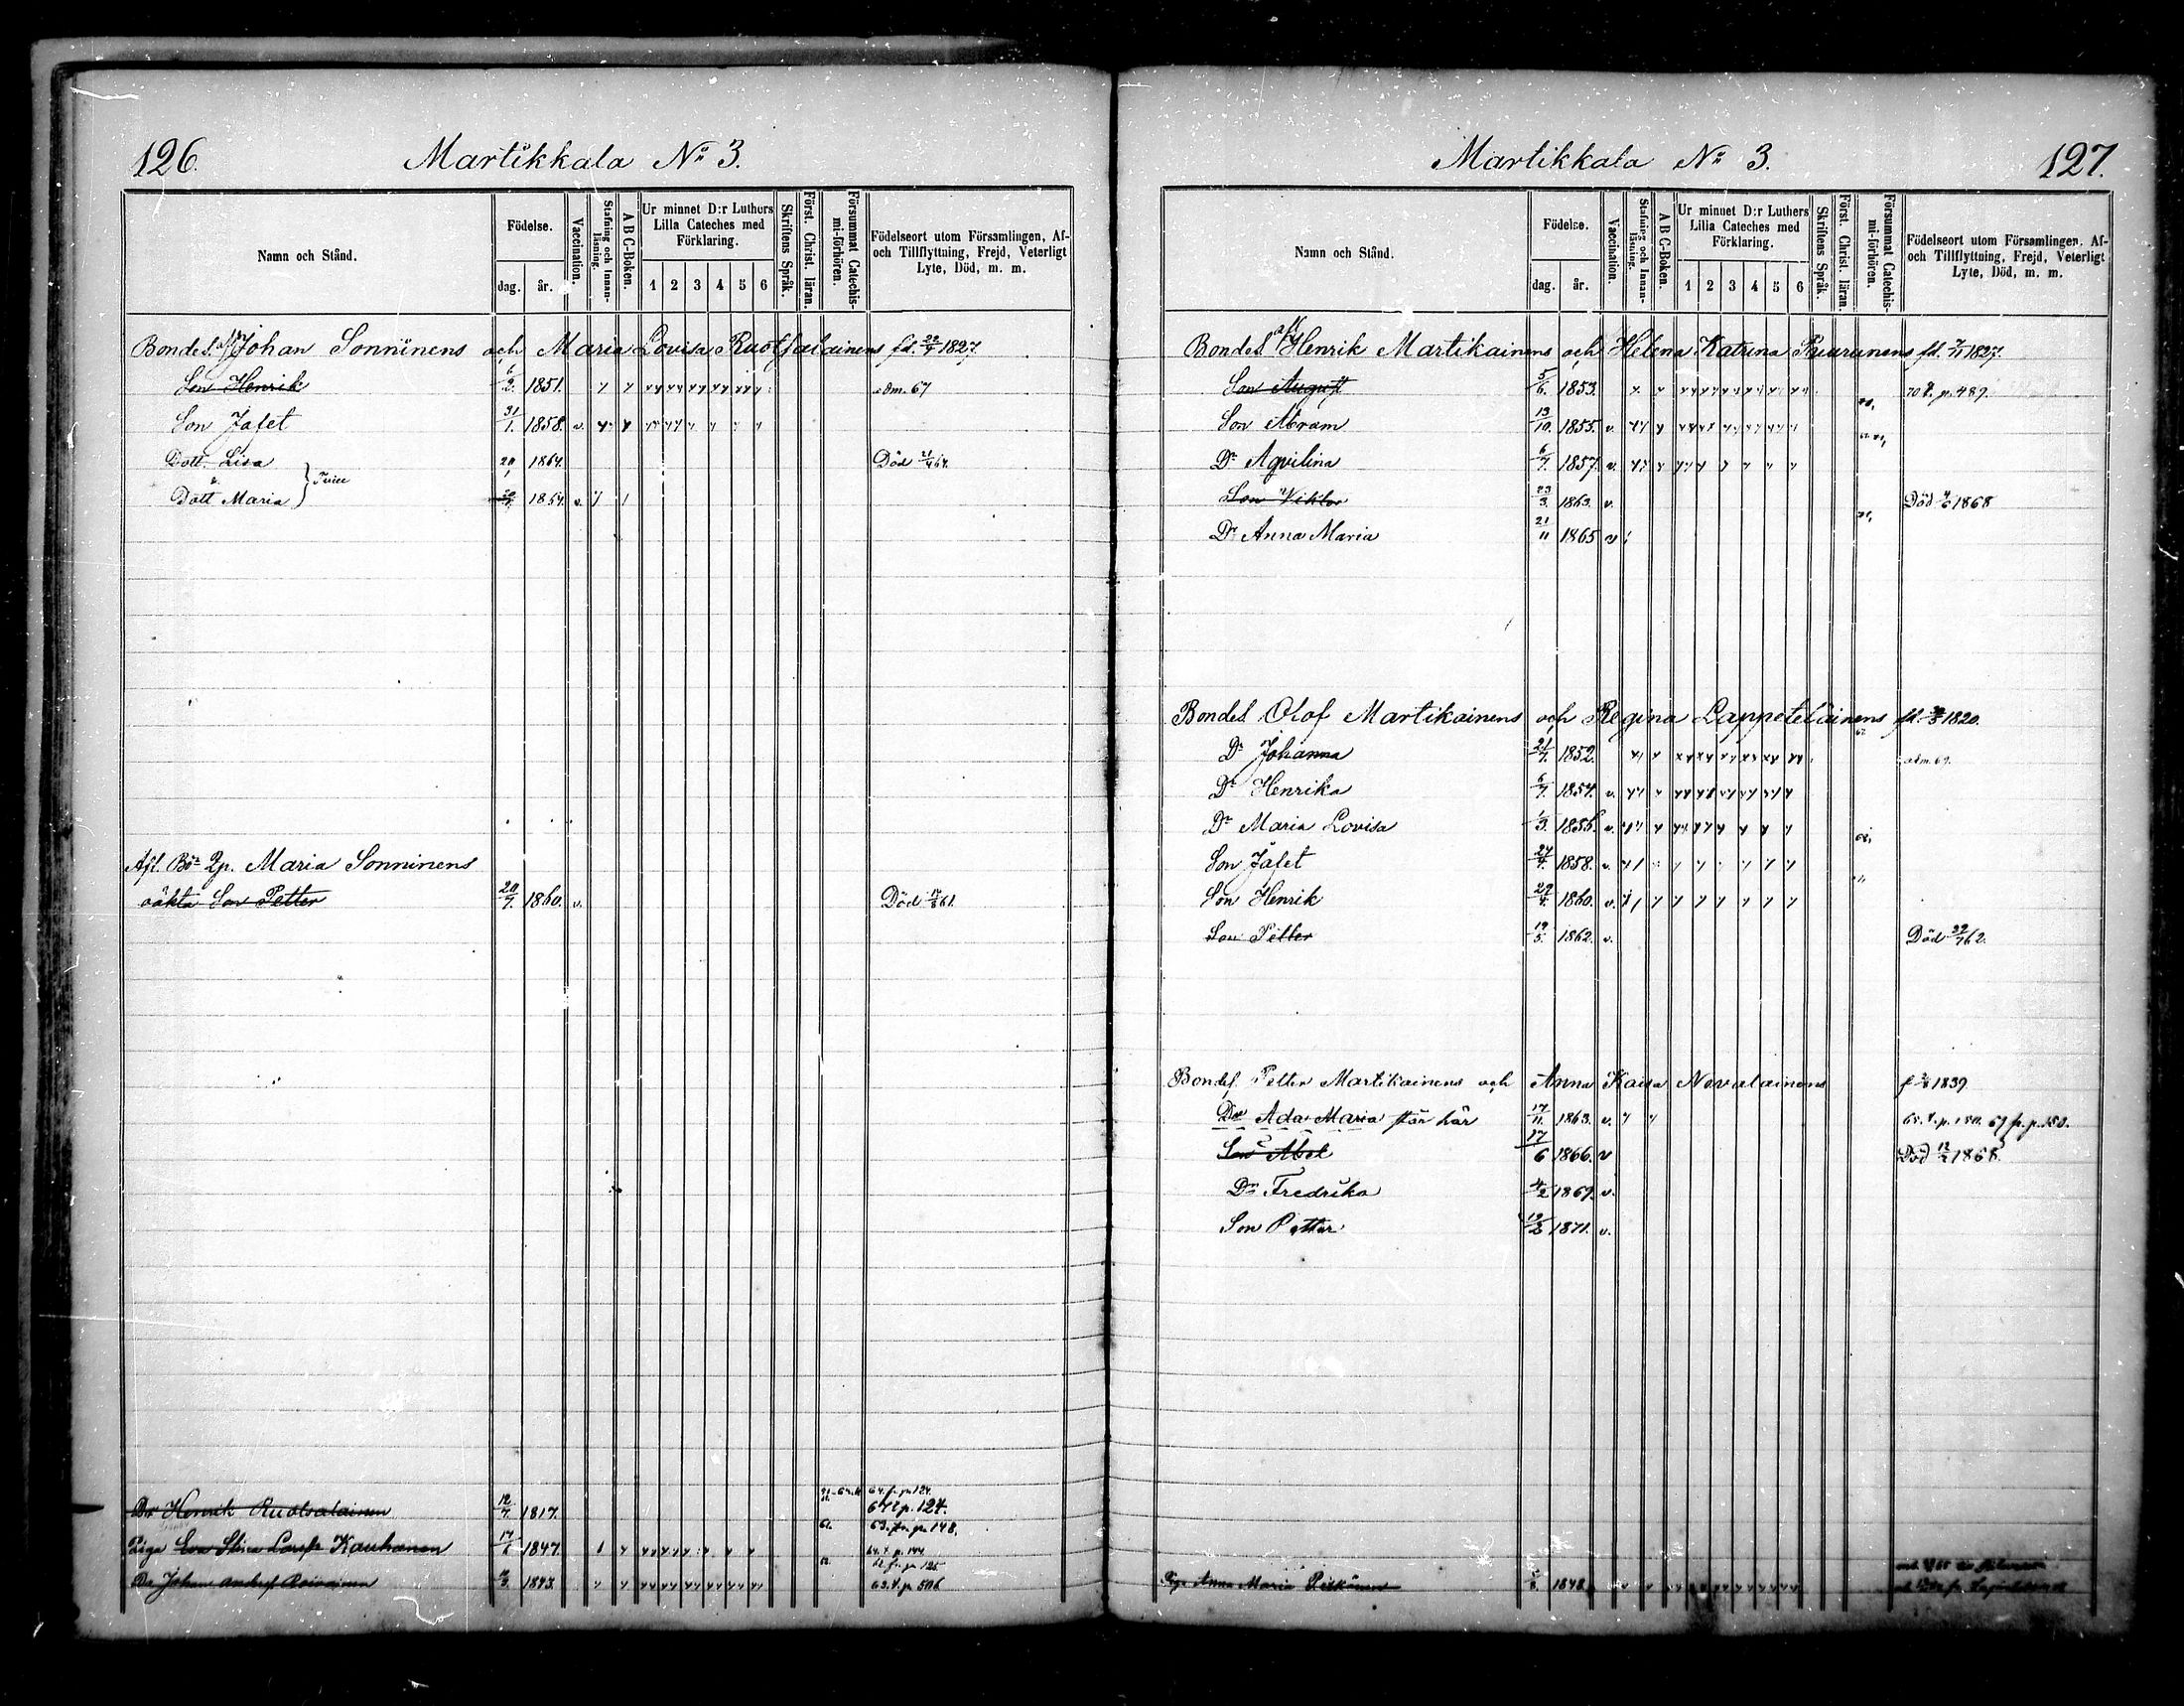 126.
Martikkala No 3.
Namn och Stånd.
Födelse.
dag.
år.
Vaccination.
Stafning och Innanläsning.
A B C-Boken.
Ur minnet D:r Luthers Lilla Cateches med Förklaring.
1 2 3 4 5 6
Skriftens Språk.
Först. Christ. läran.
Försummat Catechismi-förhören.
Födelseort utom Församlingen, Af- och Tillflyttning, Frejd, Veterligt Lyte, Död, m. m.
Bondes. Johan Sonninens och Maria Lovisa Ruotsalainens fd. 22/7 1827.
Son Henrik 6/2. 1851. adm. 67
Son Jafet 31/1. 1858. v.
Dott. Lisa 1864. Död 21/4 64.
Dott Maria 1864. v.
Maria Sonninens
oäkta Son Petter 20/7. 1860. v. Död 61.
Dr Henrik Ruotsalainen 12/7. 1817. 64. fr. p. 124.
67 t p. 124.
63. fr. p. 148.
Piga Eva Stina Kauhanen 17/ 1847. 64. t. p. 144
62 fr. p. 125.
Dr Johan 1843. 63. t. p. 506
127.
Martikkala No 3.
Namn och Stånd.
Födelse.
dag.
år.
Vaccination.
Stafning och Innanläsning.
A B C-Boken.
Ur minnet D:r Luthers Lilla Cateches med Förklaring.
1 2 3 4 5 6
Skriftens Språk.
Först. Christ. läran.
Försummat Catechismi-förhören.
Födelseort utom Församlingen, Af- och Tillflyttning, Frejd, Veterligt Lyte, Död, m. m.
Bondes Henrik Martikainens och Helena Katrina Puurunens fd. 7/11 1827.
Son August 5/6. 1853. 70 t. p. 489.
Son Abram 13/10. 1855. v.
Dr Aqvilina 6/7. 1857. v.
Son Viktor 23/3. 1863. v. Död 1868
Dr Anna Maria 21/11 1865 v
Bondes Olof Martikainens och Regina Lappetelainens fd. 1820.
Dr Johanna 21/7. 1852. adm. 69.
Dr Henrika 6/7. 1854. v.
Dr Maria Lovisa 1/3. 1856. v.
Son Jafet 1858. v.
Son Henrik 1860. v.
Son Petter 19/5. 1862. v. Död 22/7 62.
Bondes. Petter Martikainens och Anna Kaisa Novalainens f 1839
Dr Ada Maria står här 17/11. 1863. v. 65. t. p. 150. 67 fr. p. 150.
Son Abel 17/6 1866. v Död 1868.
Dr Fredrika 4/2 1869. v.
Son Petter 1871. v.
Pig. Anna Maria 1848.